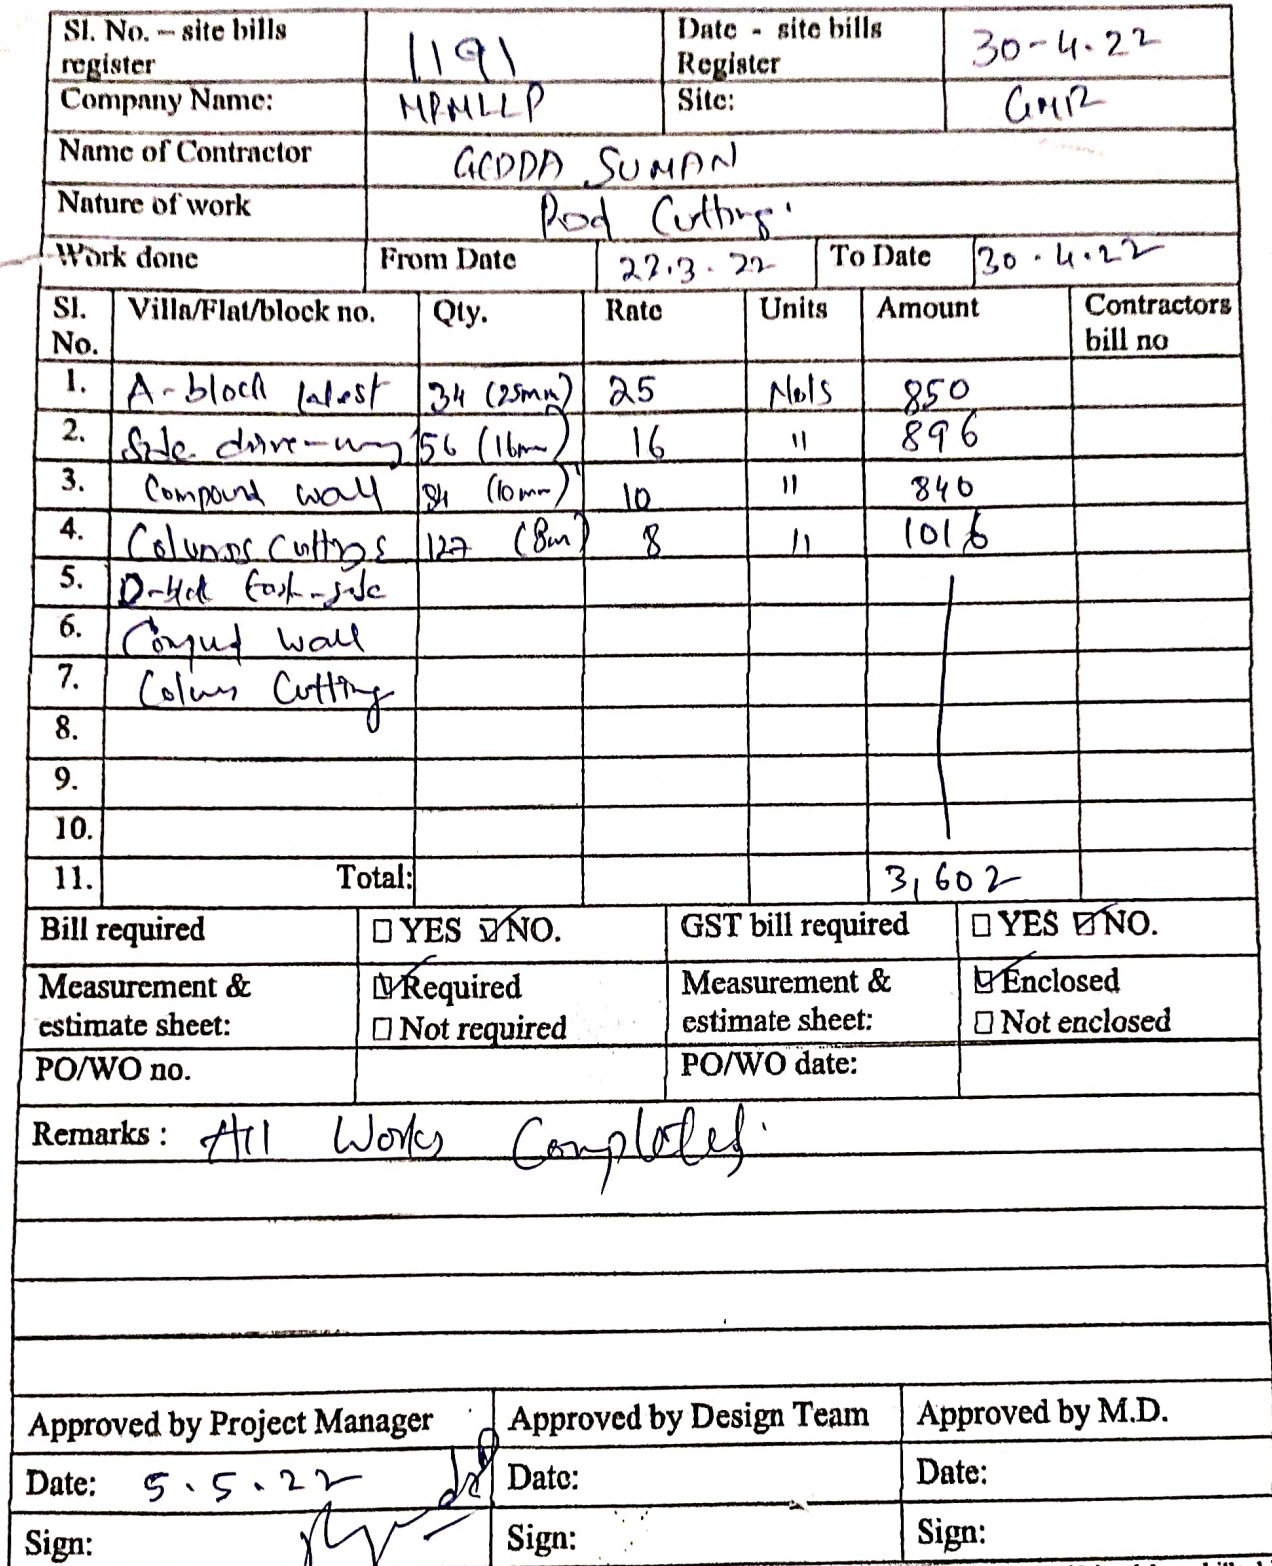 Sl. No. – site bills register 1191 Date - site bills Register 30-4-22
Company Name: MPMLLP Site: GMR
Name of Contractor GEDDA SUMAN
Nature of work Rod Cutting.
Work done From Date 22.3.22 To Date 30.4.22
Sl. No. Villa/Flat/block no. Qty. Rate Units Amount Contractors bill no
1. A-block latest 34 (25mm) 25 No's 850
2. Side drive-way 56 (16mm) 16 " 896
3. Compound wall 84 (10mm) 10 " 840
4. Columns cuttings 127 (8mm) 8 " 1016
5. East-side
6. wall
7. Colums Cutting
8.
9.
10.
11. Total: 3,602
Bill required □ YES ☑ NO. GST bill required □ YES ☑ NO.
Measurement & estimate sheet: ☑ Required □ Not required Measurement & estimate sheet: ☑ Enclosed □ Not enclosed
PO/WO no. PO/WO date:
Remarks : All Works Completed.
Approved by Project Manager Approved by Design Team Approved by M.D.
Date: 5.5.22 Date: Date:
Sign: Sign: Sign: